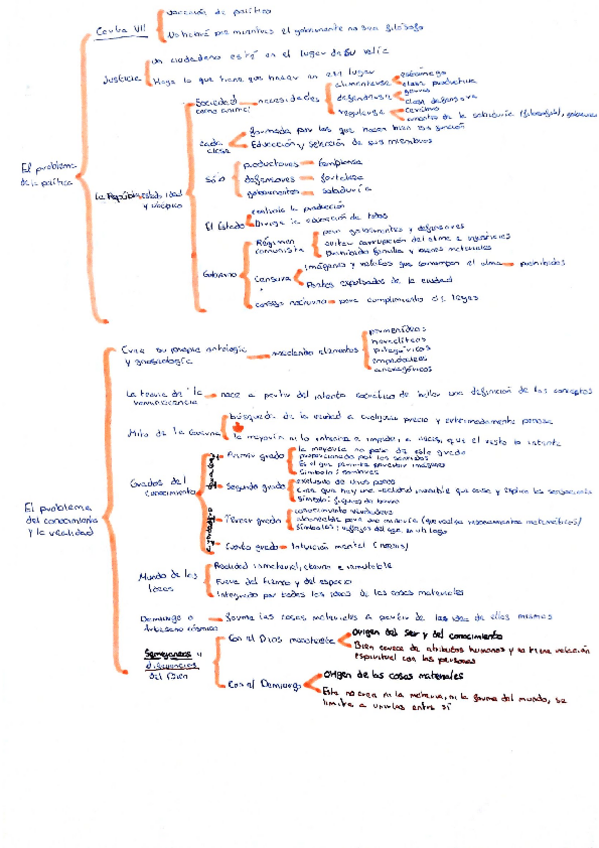 Carta VII
vocación de político
No habrá paz mientras el gobernante no sea filósofo
Justicia
un ciudadano esté en el lugar de su valía
Haga lo que tiene que hacer en ese lugar
El problema
de la política
La República
Sociedad
como animal
necesidades
alimentarse
estómago
clase productora
defenderse
garras
clase defensora
regularse
cerebro
amantes de la sabiduría (filósofos), gobernar
cada
clase
formada por los que hacen bien su función
Educación y selección de sus miembros
Sólo
productores — templanza
defensores — fortaleza
gobernantes — sabiduría
El Estado
controla la producción
Dirige la educación de todos
Gobierno
Régimen
comunista
para gobernantes y defensores
evitar corrupción del alma e injusticias
Prohibido familia y bienes materiales
Censura
Imágenes y relatos que corrompen el alma — prohibidos
Poetas expulsados de la ciudad
consejo nocturno — para cumplimiento de leyes
El problema
del conocimiento
y la realidad
Crea su propia ontología
y gnoseología
mezclando elementos
parmenídeos
heraclíteos
pitagóricos
empédocles
anaxagóricos
La teoría de la
reminiscencia
nace a partir del intento socrático de hallar una definición de los conceptos
Mito de la Caverna
búsqueda de la verdad a cualquier precio y extremadamente penosa
la mayoría ni lo intenta e impide, a veces, que el resto lo intente
Grados del
conocimiento
Primer grado
la mayoría no pasa de este grado
proporcionado por los sentidos
Es el que permite percibir imágenes
Símbolo: sombras
Segundo grado
exclusivo de unos pocos
Símbolo: figuras de barro
Tercer grado
conocimiento verdadero
alcanzable para una minoría (que realiza razonamientos matemáticos)
Símbolos: reflejos del sol en un lago
Cuarto grado — Intuición mental (noesis)
Mundo de las
Ideas
Realidad inmaterial, eterna e inmutable
Fuera del tiempo y del espacio
Integrado por todas las ideas de las cosas materiales
Demiurgo o
Artesano cósmico
forma las cosas materiales a partir de las ideas de ellas mismas
Semejanzas y
diferencias
del Bien
Con el Dios monoteísta
Origen del ser y del conocimiento
Bien carece de atributos humanos y no tiene relación
espiritual con las personas
Con el Demiurgo
Origen de las cosas materiales
Este no crea ni la materia, ni la forma del mundo, se
limita a unirlas entre sí